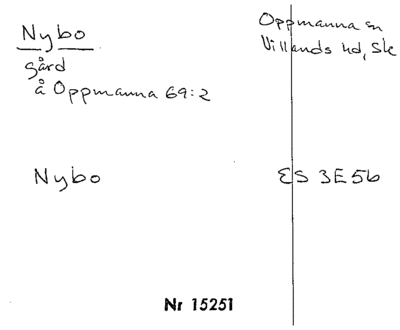 Nybo
Oppmanna sn
Villands hd, Sk
gård
å Oppmanna 69:2
Nybo
ES 3E5b
Nr 15251